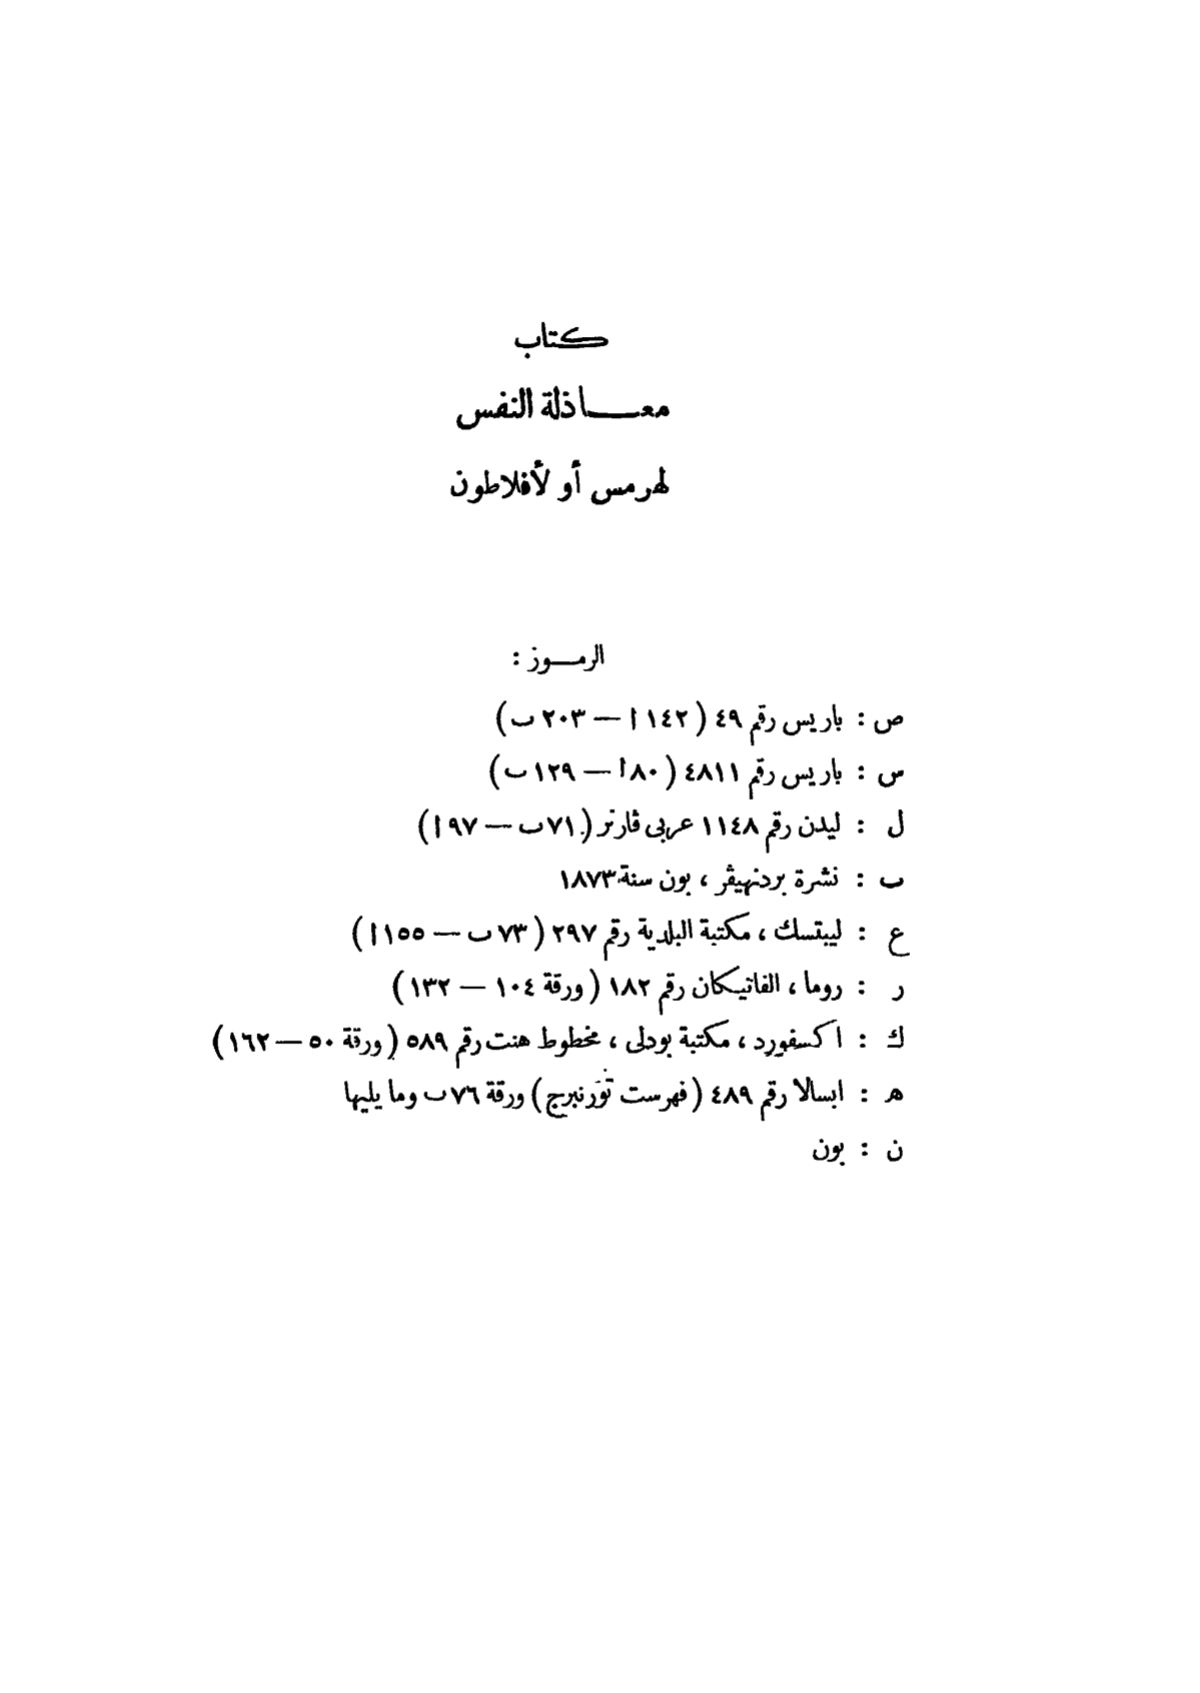 كتاب
معـــاذلة النفس
لهرمس أو لأفلاطون
الرمـــوز :
ص : باريس رقم ٤٩ ( ١٤٢ ا — ٢٠٣ ب )
س : باريس رقم ٤٨١١ ( ٨٠ أ — ١٢٩ ب )
ل : ليدن رقم ١١٤٨ عربى ڤارنر ( ٧١ ب — ٩٧ ا )
ب : نشرة بردنهيڤر ، بون سنة ١٨٧٣
ع : ليبتسك ، مكتبة البلدية رقم ٢٩٧ ( ٧٣ ب — ١٥٥ ا )
ر : روما ، الفاتيكان رقم ١٨٢ ( ورقة ١٠٤ — ١٣٢ )
ك : اكسفورد ، مكتبة بودلى ، مخطوط هنت رقم ٥٨٩ ( ورقة ٥٠ — ١٦٢ )
ه : ابسالا رقم ٤٨٩ ( فهرست تورنبرج ) ورقة ٧٦ ب وما يليها
ن : بون